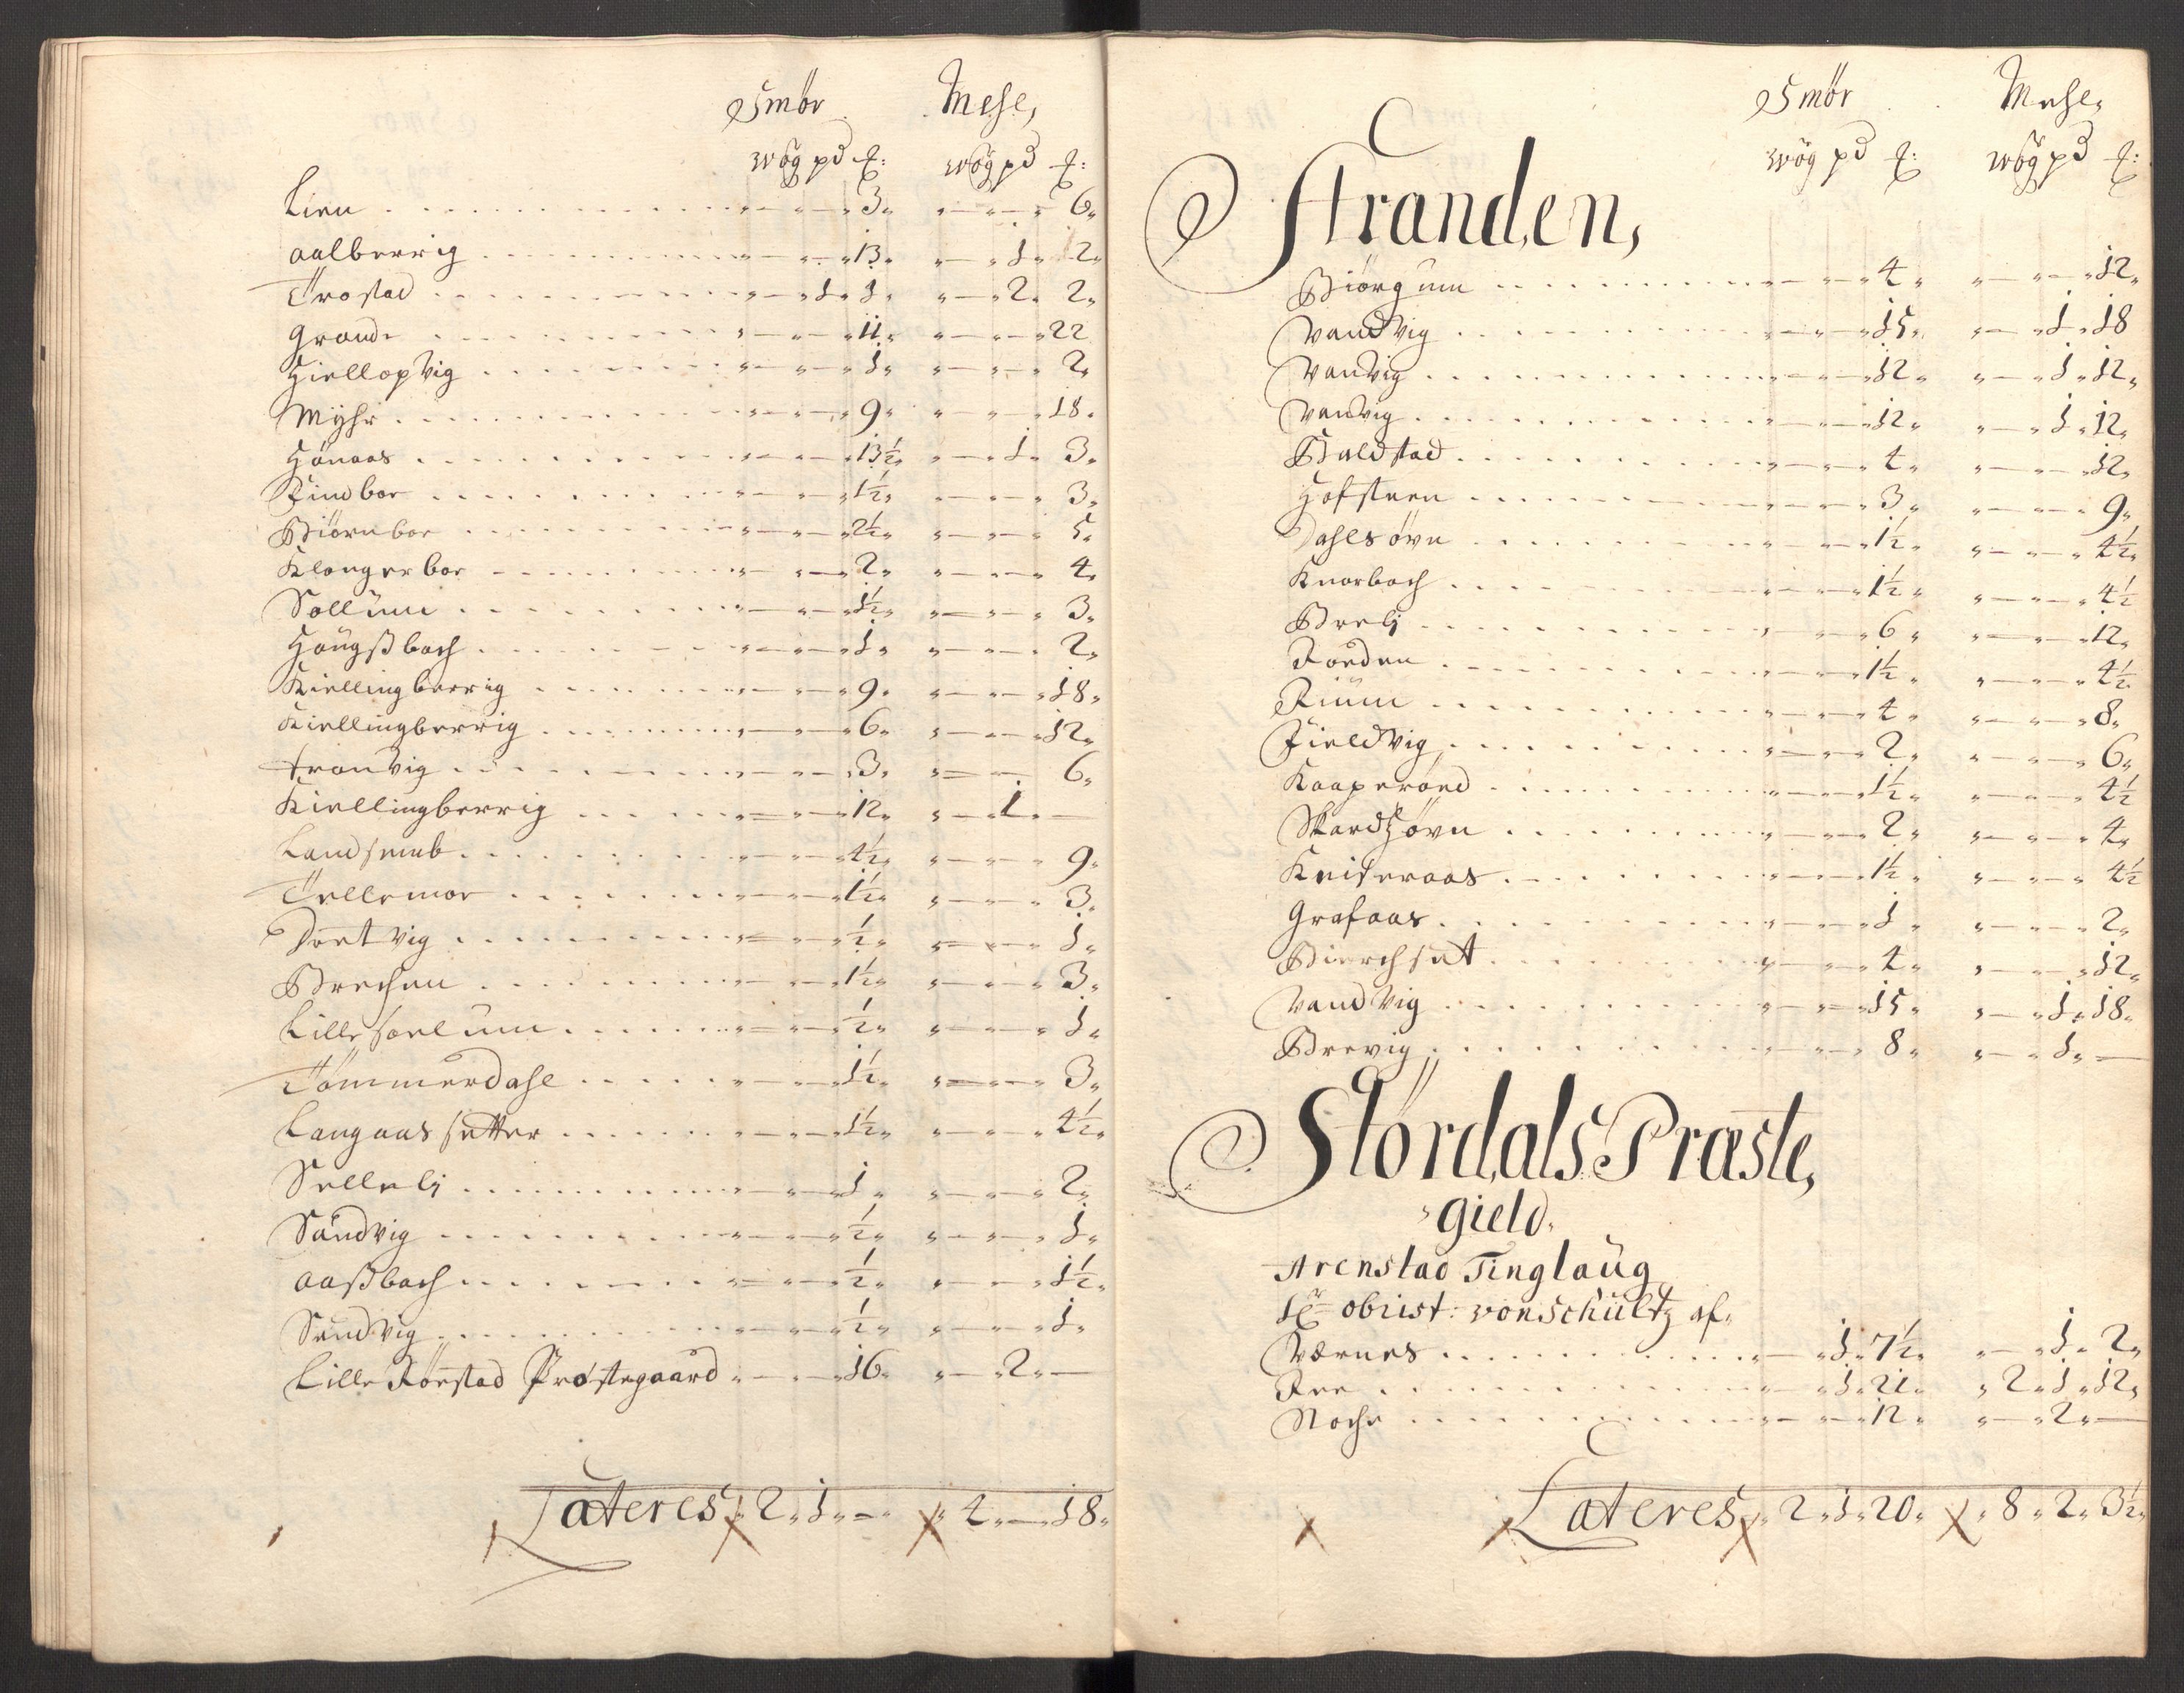 Smör Mehl,
wog pd ℔: wog pd ℔:
Lien . . . . „ — „ — „ 3 „ „ — „ — „ 6 „
Aalberrig . . . . „ — „ — „ 13 „ „ — „ 1 „ 2 „
Trostad . . . . „ — „ 1 „ 1 „ „ — „ 2 „ 2 „
Grande . . . . „ — „ — „ 11 „ „ — „ — „ 22
Hiellopvig . . . . „ — „ — „ 1 „ „ — „ — „ 2 „
Myhr . . . . „ — „ — „ 9 „ „ — „ — „ 18 „
Hönaas . . . . „ — „ — „ 13½ „ „ — „ 1 „ 3 „
Findboe . . . . „ — „ — „ 1½ „ „ — „ — „ 3 „
Biörnboe . . . . „ — „ — „ 2½ „ „ — „ — „ 5 „
Klongerboe . . . . „ — „ — „ 2 „ „ — „ — „ 4 „
Sollüm . . . . „ — „ — „ 1½ „ „ — „ — „ 3 „
Höugßbach . . . . „ — „ — „ 1 „ „ — „ — „ 2 „
Kiellingberrig . . . . „ — „ — „ 9 „ „ — „ — „ 18 „
Kiellingberrig . . . . „ — „ — „ 6 „ „ — „ — „ 12 „
Tronvig . . . . „ — „ — „ 3 „ „ — „ — 6 „
Kiellingberrig . . . . „ — „ — „ 12 „ „ — „ 1 „ —
Landsemb . . . . „ — „ — „ 4½ „ „ — „ — „ 9 „
Tellemoe . . . . „ — „ — „ 1½ „ „ — „ — „ 3 „
Dortvig . . . . „ — „ — „ ½ „ „ — „ — „ 1 „
Brechen . . . . „ — „ — „ 1½ „ „ — „ — „ 3 „
Lille soelum . . . . „ — „ — „ ½ „ „ — „ — „ 1 „
Tömmerdahl . . . . „ — „ — „ 1½ „ „ — „ — „ 3 „
Langaas setter . . . . „ — „ — „ 1½ „ „ — „ — „ 4½ „
Sellelj . . . . „ — „ — „ 1 „ „ — „ — „ 2 „
Sandvig . . . . „ — „ — „ ½ „ „ — „ — „ 1 „
Aaßbach . . . . „ — „ — „ ½ „ „ — „ — „ 1½ „
Sundvig . . . . „ — „ — „ ½ „ „ — „ — „ 1 „
Lille Rörstad Prostegaard „ — „ — „ 16 „ „ — „ 2 „ —
Lateres „ 2 „ 1 „ — „ „ 4 „ — „ 18 „
Smör Mehl,
wog pd ℔: wog pd ℔:
Stranden,
Biörgum . . . . „ — „ — „ 4 „ „ — „ — „ 12 „
Vandvig . . . . „ — „ — „ 15 „ „ — „ 1 „ 18
Vanvig . . . . „ — „ — „ 12 „ „ — „ 1 „ 12 „
Vanvig . . . . „ — „ — „ 12 „ „ — „ 1 „ 12 „
Baldstad . . . . „ — „ — „ 4 „ „ — „ — „ 12 „
Hofsteen . . . . „ — „ — „ 3 „ „ — „ — „ 9 „
Dahlsövn . . . . „ — „ — „ 1½ „ „ — „ — „ 4½ „
Knorbach . . . . „ — „ — „ 1½ „ „ — „ — „ 4½
Brelj . . . . „ — „ — „ 6 „ „ — „ — „ 12 „
Roeden . . . . „ — „ — „ 1½ „ „ — „ — „ 4½
Rium . . . . „ — „ — „ 4 „ „ — „ — „ 8 „
Fieldvig . . . . „ — „ — „ 2 „ „ — „ — „ 6 „
Kaaperöed . . . . „ — „ — „ 1½ „ „ — „ — „ 4½
Skardhövn . . . . „ — „ — „ 2 „ „ — „ — „ 4 „
Kniferaas . . . . „ — „ — „ 1½ „ „ — „ — „ 4½
Grafaas . . . . „ — „ — „ 1 „ „ — „ — „ 2 „
Bierchset . . . . „ — „ — „ 4 „ „ — „ — „ 12 „
Vandvig . . . . „ — „ — „ 15 „ „ — „ 1 „ 18 „
Brevig . . . . „ — „ — „ 8 „ „ — „ 1 „ —
Stördals Præste,
Gield,
Arenstad Tinglaüg
Hr obrist: von Schültz af,
Værnes . . . . „ — „ 1 „ 7½ „ „ — „ 1 „ 2 „
Ree . . . . „ — „ 1 „ 21 „ „ 2 „ 1 „ 12 „
Moche . . . . „ — „ — „ 12 „ „ — „ 2 „ —
Lateres „ 2 „ 1 „ 20 „ „ 8 „ 2 „ 3½ „